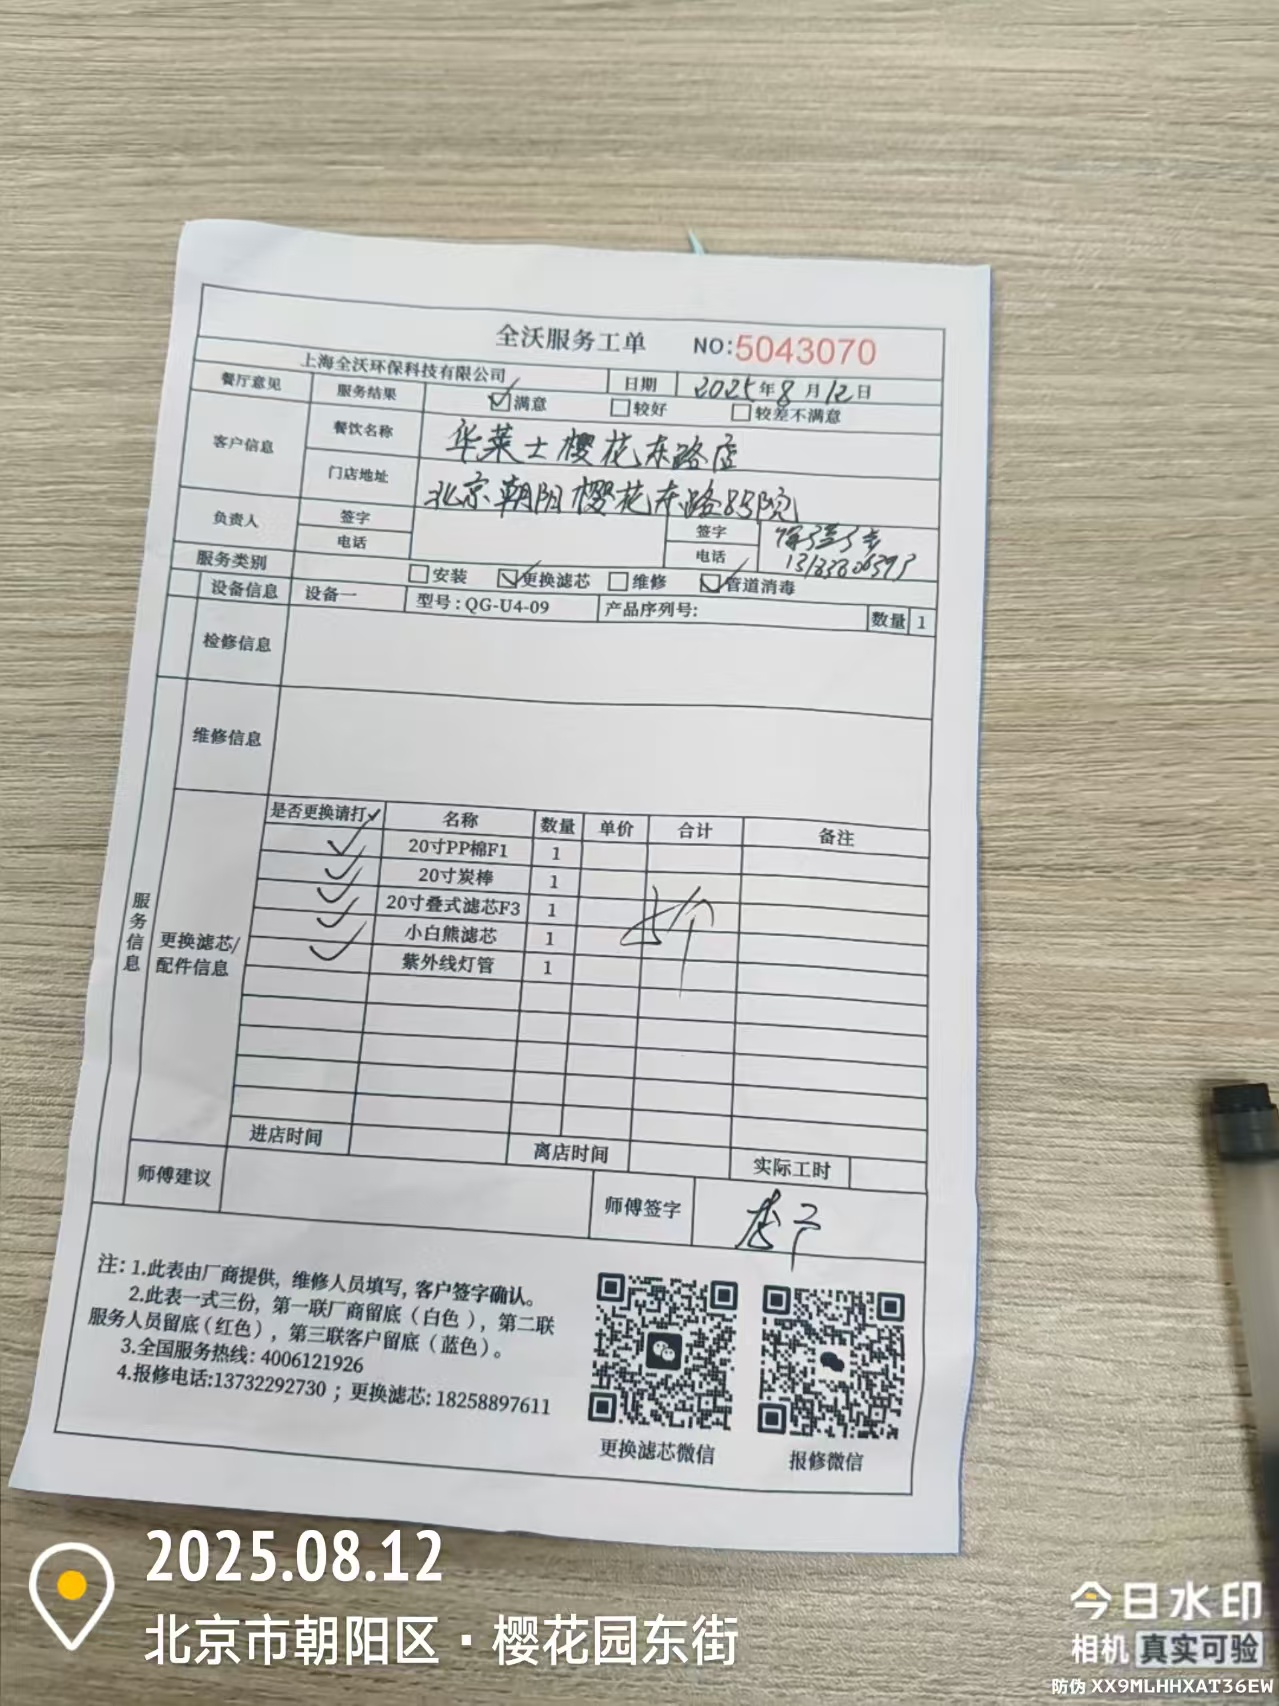 全沃服务工单 NO:5043070
上海全沃环保科技有限公司 日期 2025年8月12日
餐厅意见 服务结果 满意 较好 较差不满意
客户信息 餐饮名称 华莱士樱花东路店
门店地址 北京朝阳樱花东路85院
负责人 签字 签字
电话 电话
服务类别 安装 更换滤芯 维修 管道消毒
设备信息 设备一 型号:QG-U4-09 产品序列号: 数量 1
检修信息
维修信息
服务信息
更换滤芯/配件信息
是否更换请打✓ 名称 数量 单价 合计 备注
✓ 20寸PP棉F1 1
✓ 20寸炭棒 1
✓ 20寸叠式滤芯F3 1
✓ 小白熊滤芯 1
✓ 紫外线灯管 1
进店时间 离店时间 实际工时
师傅建议 师傅签字
注:1.此表由厂商提供,维修人员填写,客户签字确认。
2.此表一式三份,第一联厂商留底(白色),第二联
服务人员留底(红色),第三联客户留底(蓝色)。
3.全国服务热线:4006121926
4.报修电话:13732292730;更换滤芯:18258897611
更换滤芯微信 报修微信
2025.08.12
北京市朝阳区·樱花园东街
今日水印
相机 真实可验
防伪 XX9MLHHXAT36EW